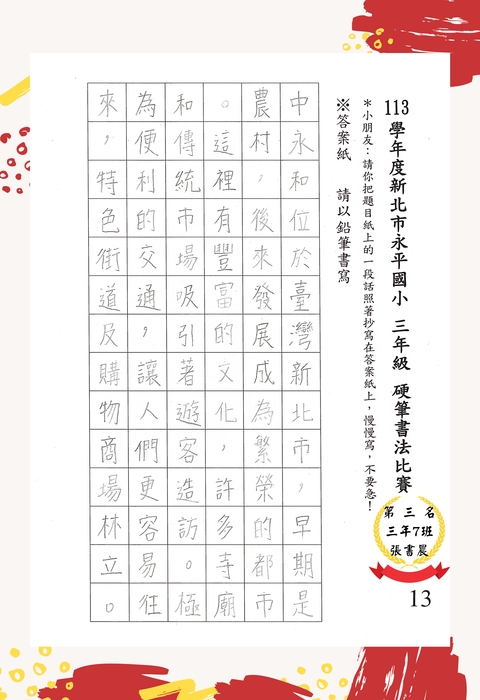 113 學年度新北市永平國小 三年級 硬筆書法比賽
＊小朋友：請你把題目紙上的一段話照著抄寫在答案紙上，慢慢寫，不要急！
※答案紙 請以鉛筆書寫
中永和位於臺灣新北市，早期是
農村，後來發展成為繁榮的都市
。這裡有豐富的文化，許多寺廟
和傳統市場吸引著遊客造訪。極
為便利的交通，讓人們更容易往
來，特色街道及購物商場林立。
第三名
三年7班
張書晨
13